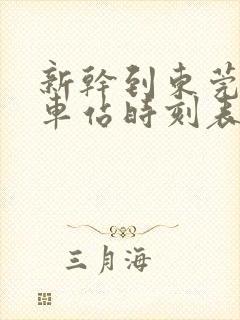 新幹到東莞
車佔時刻表
三月海